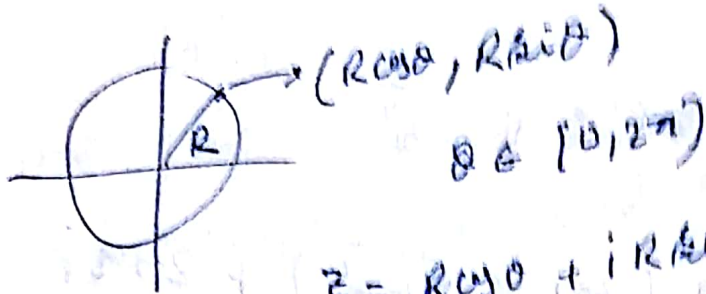 (R cosθ, R sinθ)
R
θ ∈ [0, 2π)
z = R cosθ + i R